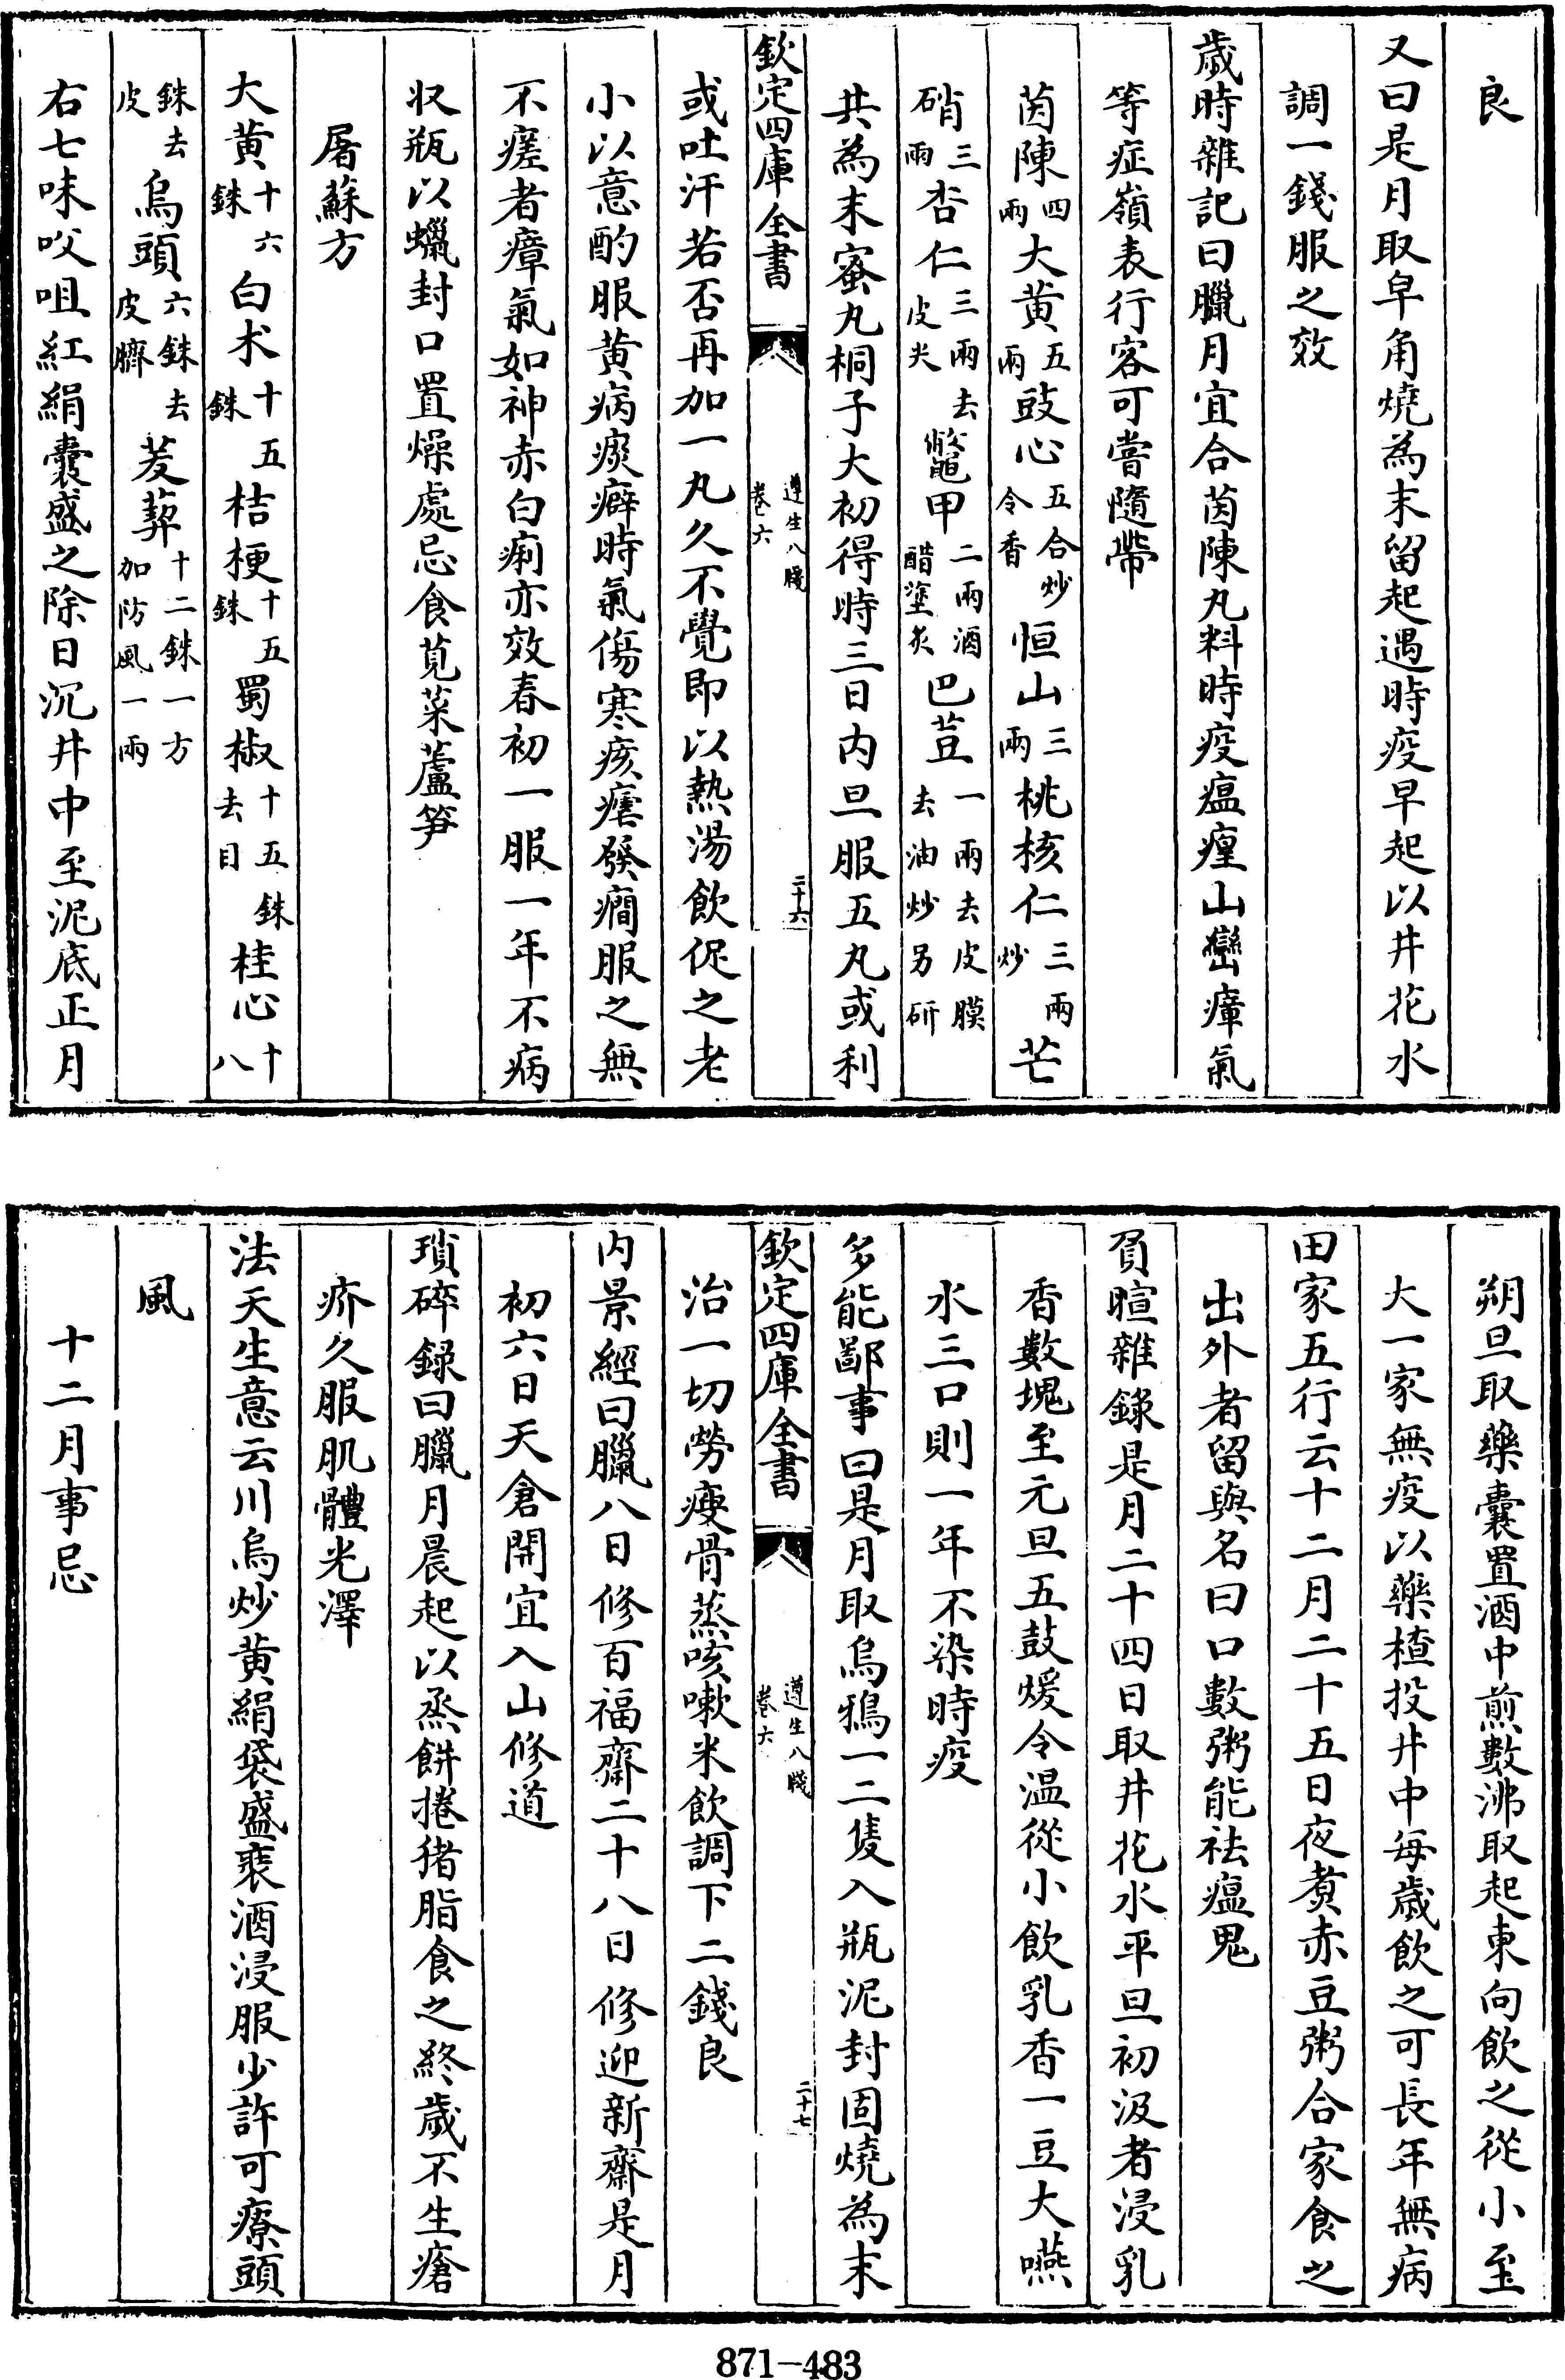 良
又曰是月取皁角燒為末留起遇時疫早起以井花水
調一錢服之效
歲時雜記曰臘月宜合茵陳丸料時疫瘟瘴山巒瘴氣
等症嶺表行客可嘗隨帶
茵陳四兩大黄五兩豉心五合炒令香恒山三兩桃核仁三兩炒芒
硝三兩杏仁三兩去皮尖鼈甲二兩酒醋塗炙巴荳一兩去皮膜去油炒另研
共為末蜜丸桐子大初得時三日内旦服五丸或利
欽定四庫全書
遵生八牋
卷六
二十六
或吐汗若否再加一丸久不覺即以熱湯飲促之老
小以意酌服黄病痰癖時氣傷寒痎瘧發癇服之無
不瘥者瘴氣如神赤白痢亦效春初一服一年不病
収瓶以蠟封口置燥處忌食莧菜蘆笋
屠蘇方
大黄十六銖白术十五銖桔梗十五銖蜀椒十五銖去目桂心十八
銖去皮烏頭六銖去皮臍菝葜十二銖一方加防風一兩
右七味㕮咀紅絹囊盛之除日沉井中至泥底正月
朔旦取藥囊置酒中煎數沸取起東向飲之從小至
大一家無疫以藥楂投井中每歲飲之可長年無病
田家五行云十二月二十五日夜煑赤豆粥合家食之
出外者留與名曰口數粥能祛瘟鬼
負暄雜錄是月二十四日取井花水平旦初汲者浸乳
香數塊至元旦五鼓煖令温從小飲乳香一豆大嚥
水三口則一年不染時疫
多能鄙事曰是月取烏鴉一二隻入瓶泥封固燒為末
欽定四庫全書
遵生八牋
卷六
二十七
治一切勞瘦骨蒸咳嗽米飲調下二錢良
内景經曰臘八日修百福齋二十八日修迎新齋是月
初六日天倉開宜入山修道
瑣碎録曰臘月晨起以烝餅捲猪脂食之終歲不生瘡
疥久服肌體光澤
法天生意云川烏炒黄絹袋盛裏酒浸服少許可療頭
風
十二月事忌
871-483